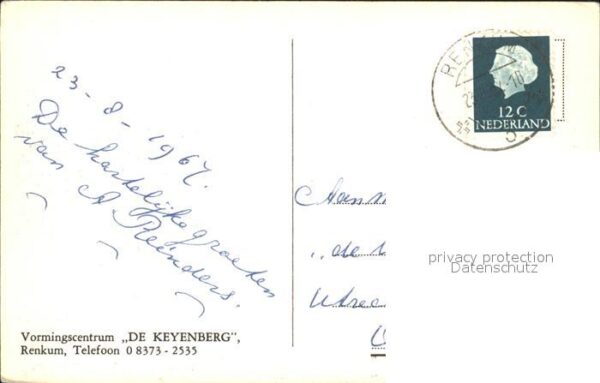 23-8-1967.
De hartelijke groeten
van A. Reinders.
Vormingscentrum „DE KEYENBERG",
Renkum, Telefoon 0 8373 - 2535
12 C
NEDERLAND
Aan
„de
Utrec
privacy protection
Datenschutz